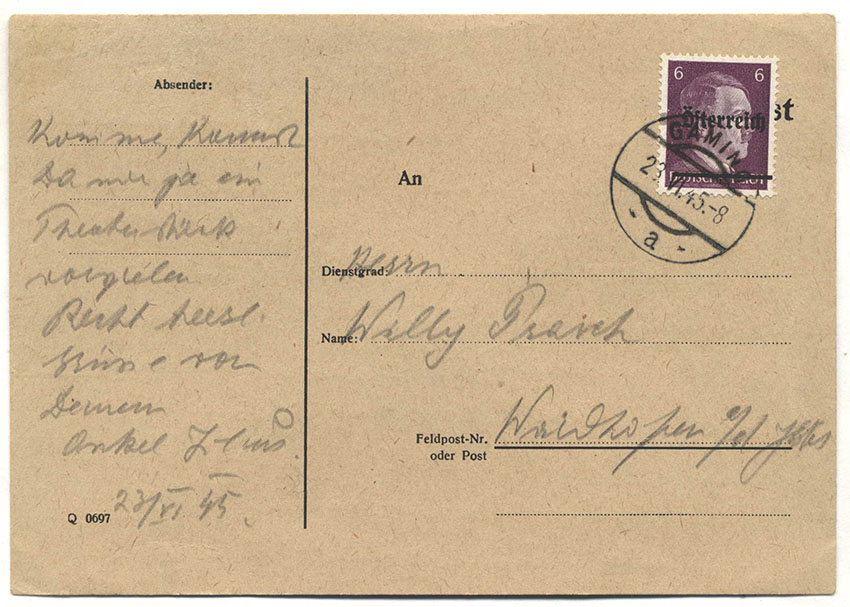 Absender:
Komme, kannst
Da mir ja ein
Theaterstück
vorspielen
Recht herzl.
Grüße von
Deinem
Onkel
23/VI 45.
Q 0697
An
6 6
Österreich
DEUTSCHES REICH
st
GAMING
23.VI.45.-8
a
Dienstgrad: Herrn
Name: Willy
Feldpost-Nr. Waidhofen a/d Ybbs
oder Post